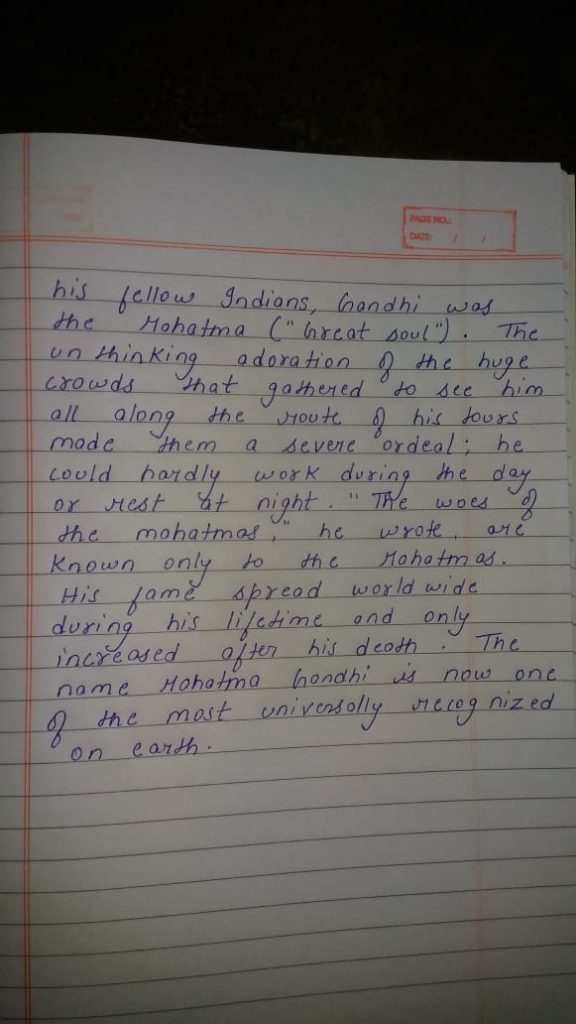 PAGE NO.:
DATE: / /
his fellow Indians, Gandhi was
the Mahatma ("Great soul"). The
un thinking adoration of the huge
crowds that gathered to see him
all along the route of his tours
made them a severe ordeal; he
could hardly work during the day
or rest at night. "The woes of
the mahatmas," he wrote, are
known only to the Mahatmas.
His fame spread world wide
during his lifetime and only
increased after his death. The
name Mahatma Gandhi is now one
of the most universally recog nized
on earth.